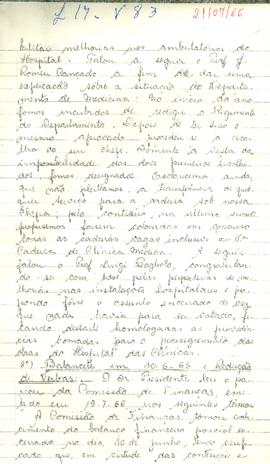 L 17 - V 83 21/07/66
bilitar melhorias nos ambulatórios do
Hospital. Falou a seguir o Prof. J.
Romeu Cançado a fim de dar uma
explicação sobre a situação do Departa-
mento de Medicina: "No início do ano
fomos incumbidos de redigir o Regimento
do Departamento. Depois de ser o
mesmo aprovado procedeu-se a esco-
lha do seu chefe. Somente à vista da
impossibilidade dos dois primeiros escolhi-
dos, fomos designados
que não pleiteamos a transferência de qual-
quer serviço para a
chefia; pelo contrário, na última reunião
propusemos fossem colocadas em concurso
todas as cadeiras vagas inclusive a 1ª
Cadeira de Clínica Médica. A seguir
falou o Prof. Luigi Bogliolo, congratulan-
do-se com as perspectivas de me-
lhoria nas instalações hospitalares e pro-
pondo fosse o assunto encerrado de vez
que nada havia para ser votado, fi-
cando destarte homologadas as providên-
cias tomadas para o prosseguimento das
obras do Hospital das Clínicas.
8º) Balancete em 30-6-66 e Redução
de Verbas: O Dr. Presidente leu o pa-
recer da Comissão de Finanças, emi-
tido em 19.7.66 nos seguintes termos:
A Comissão de Finanças, tomou conhe-
cimento do balanço financeiro parcial en-
cerrado no dia 30 de junho, tendo verifi-
cado que, em virtude das